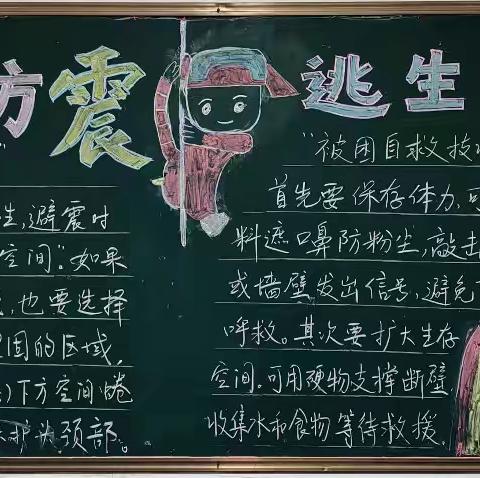 防震逃生
"
生,避震时
空间"。如果
,也要选择
固的区域,
下方空间蜷
护头颈部。
"被困自救技
首先要保存体力,可
料遮口鼻防粉尘,敲击
或墙壁发出信号,避免
呼救。其次要扩大生存
空间。可用硬物支撑断壁
收集水和食物等待救援。